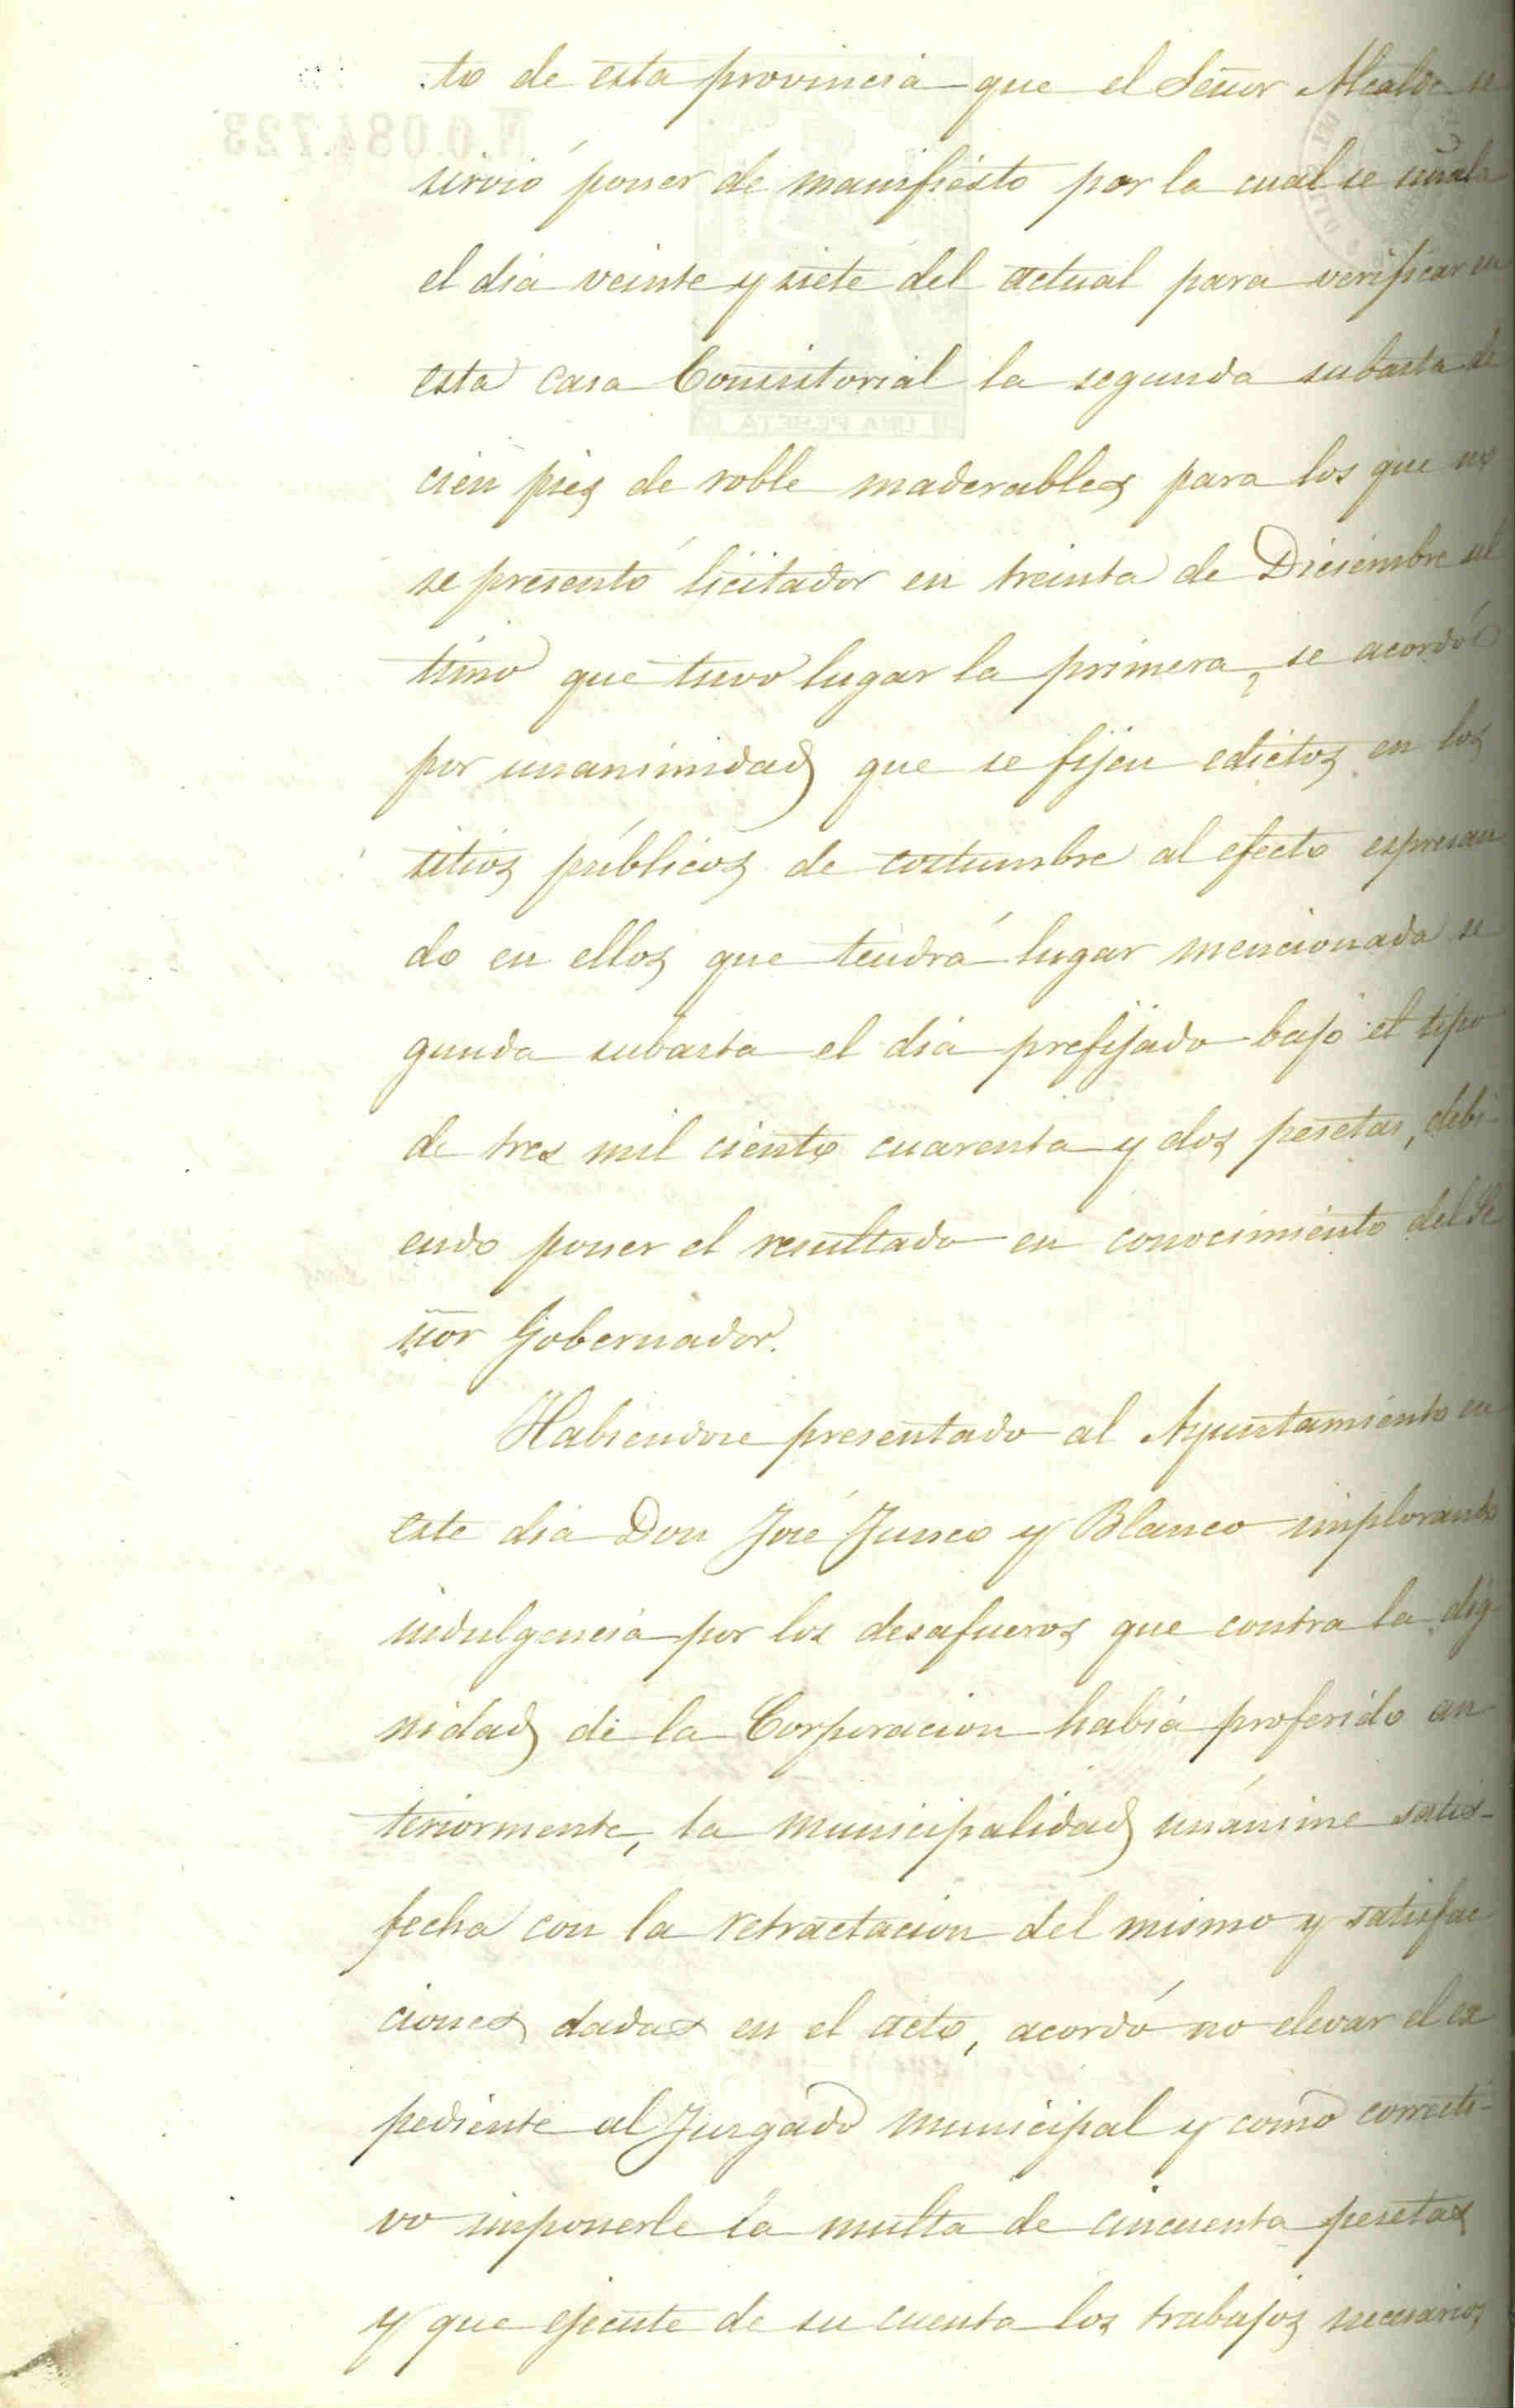 to de esta provincia que el Señor Alcalde se
sirvió poner de manifiesto por la cual se señala
el dia veinte y siete del actual para verificar en
esta casa Consistorial la segunda subasta de
cien pies de roble maderables para los que no
se presentó licitador en treinta de Diciembre ul
timo que tuvo lugar la primera, se acordó
por unanimidad que se fijen edictos en los
sitios públicos de costumbre al efecto espresan
do en ellos que tendrá lugar mencionada se
gunda subasta el dia prefijado bajo el tipo
de tres mil ciento cuarenta y dos pesetas, debi-
endo poner el resultado en conocimiento del Se
ñor Gobernador.
Habiendose presentado al Ayuntamiento en
este dia Don José Junco y Blanco implorando
indulgencia por los desafueros que contra la dig-
nidad de la Corporacion habia proferido an
teriormente, la municipalidad unánime satis-
fecha con la retractacion del mismo y satisfac
ciones dadas en el acto, acordó no elevar el ex
pediente al Juzgado municipal y como correcti-
vo imponerle la multa de cincuenta pesetas
y que ejecute de su cuenta los trabajos necesarios
N.0.084.723
UNA PESETA